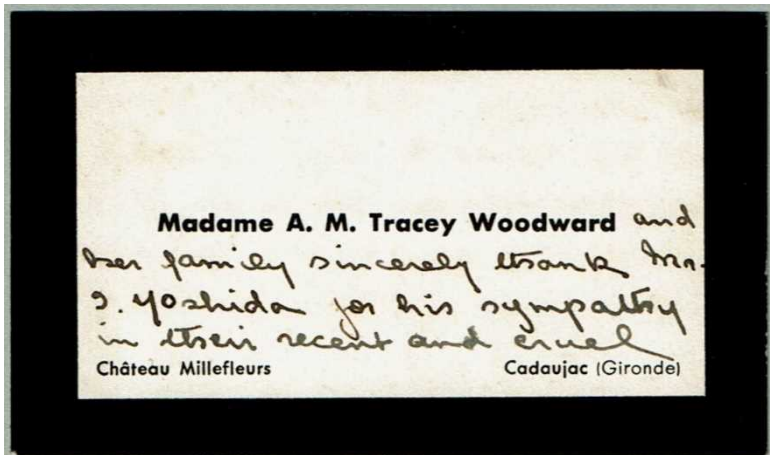 Madame A. M. Tracey Woodward and
her family sincerely thank Mr.
I. Yoshida for his sympathy
in their recent and cruel
Château Millefleurs Cadaujac (Gironde)